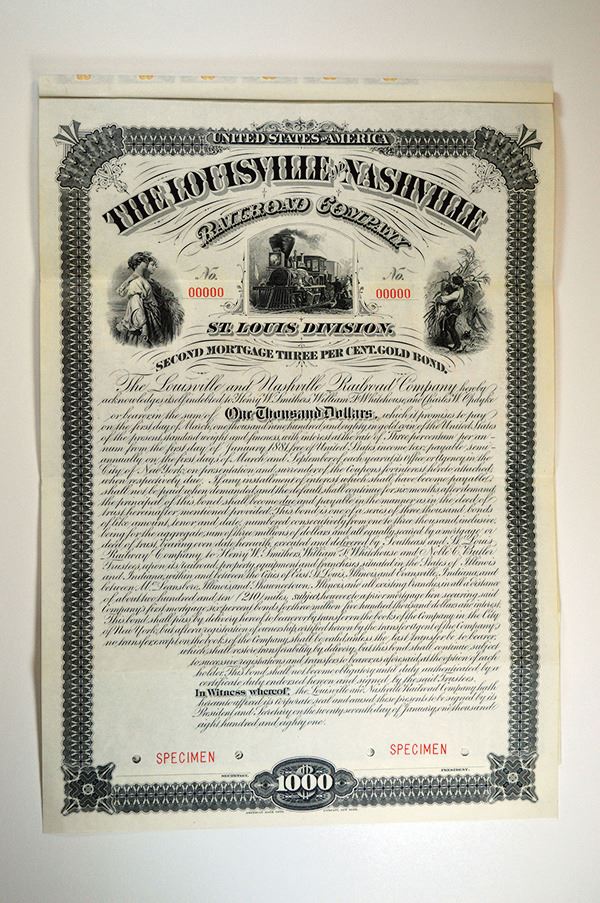 UNITED STATES OF AMERICA
THE LOUISVILLE AND NASHVILLE
RAILROAD COMPANY
No. No.
00000 00000
ST. LOUIS DIVISION.
SECOND MORTGAGE THREE PER CENT. GOLD BOND.
The Louisville and Nashville Railroad Company hereby
acknowledges itself indebted to Henry W. Smithers, William F. Whitehouse, and Charles W. Opdyke
or bearer in the sum of One Thousand Dollars, which it promises to pay
on the first day of March, one thousand nine hundred and eighty in gold coin of the United States
of the present standard weight and fineness, with interest at the rate of Three per centum per an-
num from the first day of January 1881, free of United States income tax, payable semi-
annually on the first days of March and September of each year at its Office or Agency in the
City of New York, on presentation and surrender of the Coupons for interest hereto attached,
when respectively due. If any installment of interest which shall have become payable
shall not be paid when demanded, and the default shall continue for six months after demand
the principal of this bond shall become due and payable in the manner as in the deed of
trust hereinafter mentioned provided. This bond is one of a series of three thousand bonds
of like amount, tenor and date, numbered consecutively from one to three thousand inclusive,
being for the aggregate sum of three millions of dollars and all equally secured by a mortgage or
deed of trust, bearing even date herewith, executed and delivered by Southeast and St. Louis
Railway Company, to Henry W. Smithers, William F. Whitehouse and Noble C. Butler
Trustees, upon its railroad, property, equipment and franchises, situated in the States of Illinois
and Indiana, within and between the Cities of East St. Louis, Illinois and Evansville, Indiana, and
between Mc. Leansboro, Illinois and Shawneetown, Illinois, and all existing branches, in all a distance
of about two hundred and ten /210/ miles, subject, however, to a prior mortgage lien securing said
Company's first mortgage six per cent bonds for three million five hundred thousand dollars and interest.
This bond shall pass by delivery hereof to bearer or by transfer on the books of the Company in the City
of New York, but after a registration of ownership certified hereon by the transfer agent of the Company
no transfer except on the books of the Company shall be valid unless the last transfer be to bearer,
which shall restore transferability by delivery, but this bond shall continue subject
to successive registrations and transfers to bearer as aforesaid, at the option of each
holder. This bond shall not become obligatory until duly authenticated by a
certificate duly endorsed hereon and signed by the said Trustees.
In Witness whereof, the Louisville and Nashville Railroad Company hath
hereunto affixed its corporate seal and caused these presents to be signed by its
President and Secretary on the twenty seventh day of January, one thousand
eight hundred and eighty one.
SPECIMEN SPECIMEN
SECRETARY. PRESIDENT.
1000